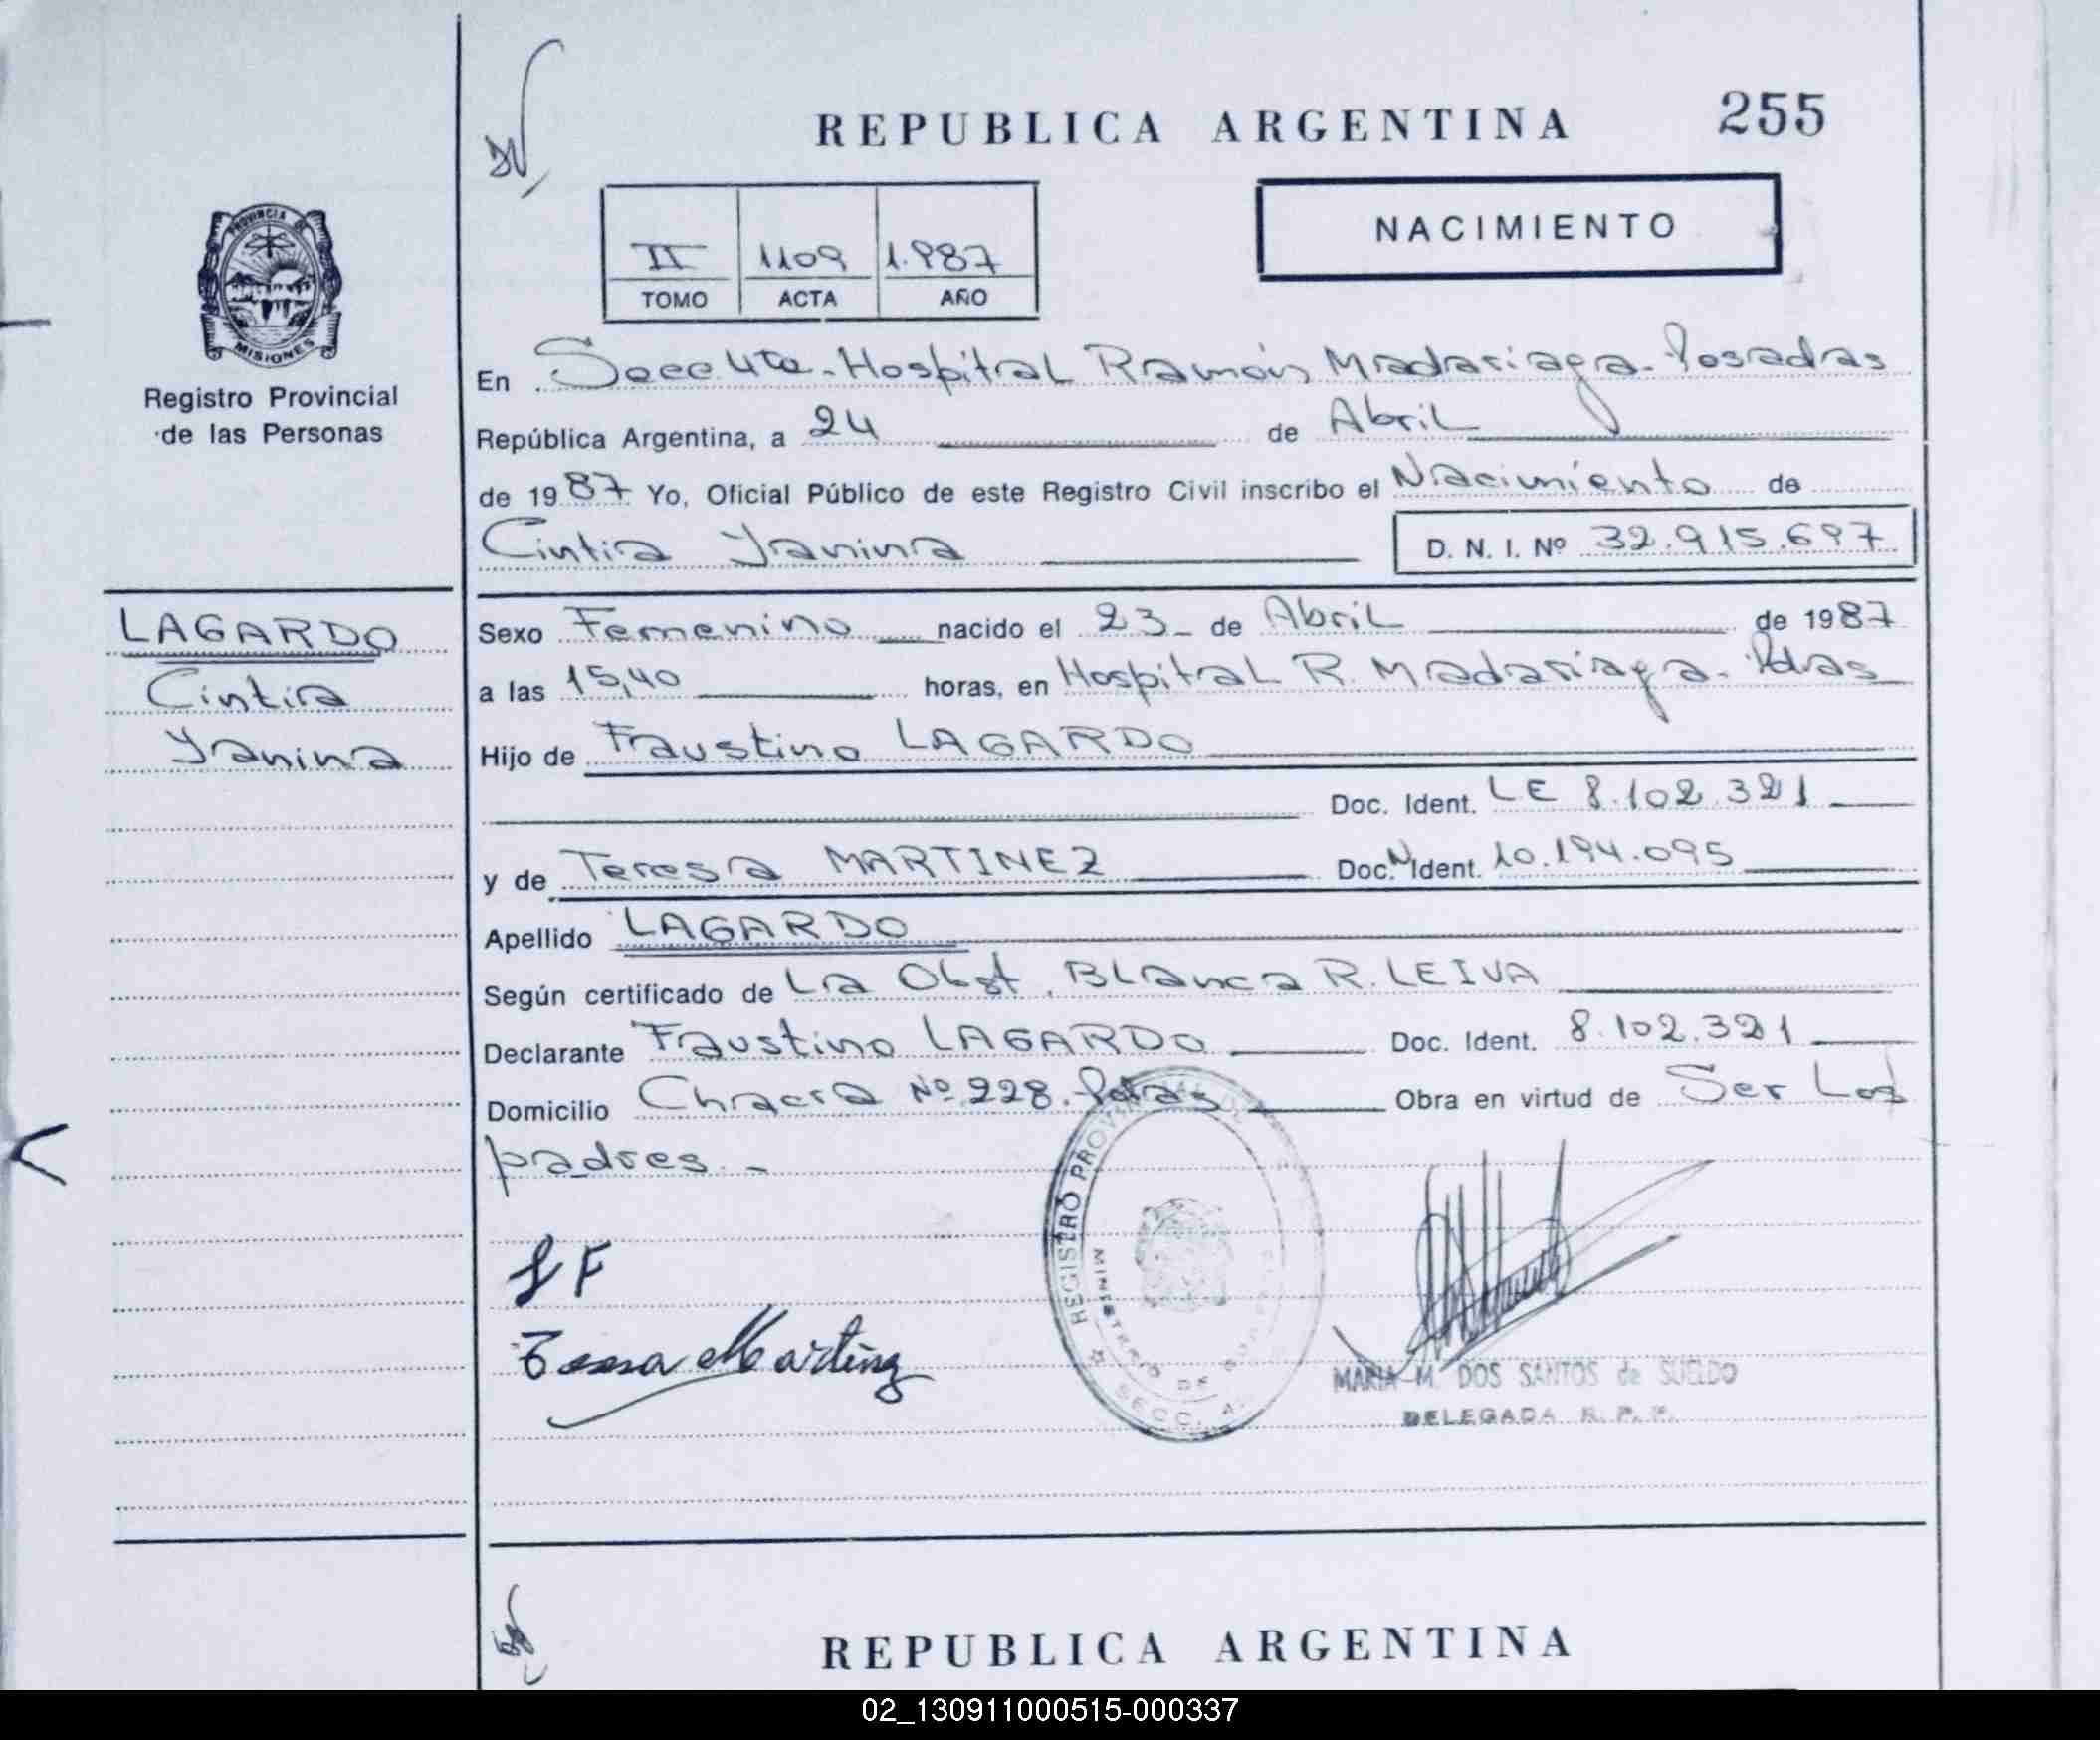 REPUBLICA ARGENTINA 255
II 1109 1.987
TOMO ACTA AÑO
NACIMIENTO
PROVINCIA DE
MISIONES
Registro Provincial
de las Personas
LAGARDO
Cintia
Yanina
En Secc 4ta. Hospital Ramón Madariaga. Posadas
República Argentina, a 24 de Abril
de 1987 Yo, Oficial Público de este Registro Civil inscribo el Nacimiento de
Cintia Yanina D. N. I. Nº 32.915.697
Sexo Femenino nacido el 23 de Abril de 1987
a las 15,40 horas, en Hospital R. Madariaga. Pdas
Hijo de Faustino LAGARDO
Doc. Ident. LE 8.102.321
y de Teresa MARTINEZ Doc. Ident. 10.194.095
Apellido LAGARDO
Según certificado de La Obst. Blanca R. LEIVA
Declarante Faustino LAGARDO Doc. Ident. 8.102.321
Domicilio Chacra Nº 228. Pdas Obra en virtud de Ser Los
padres.-
LF
Teresa Martinez
REGISTRO PROVINCIAL DE
MINISTERIO DE
SECC. 4
MARIA M. DOS SANTOS de SUELDO
DELEGADA R. P. P.
REPUBLICA ARGENTINA
02_130911000515-000337